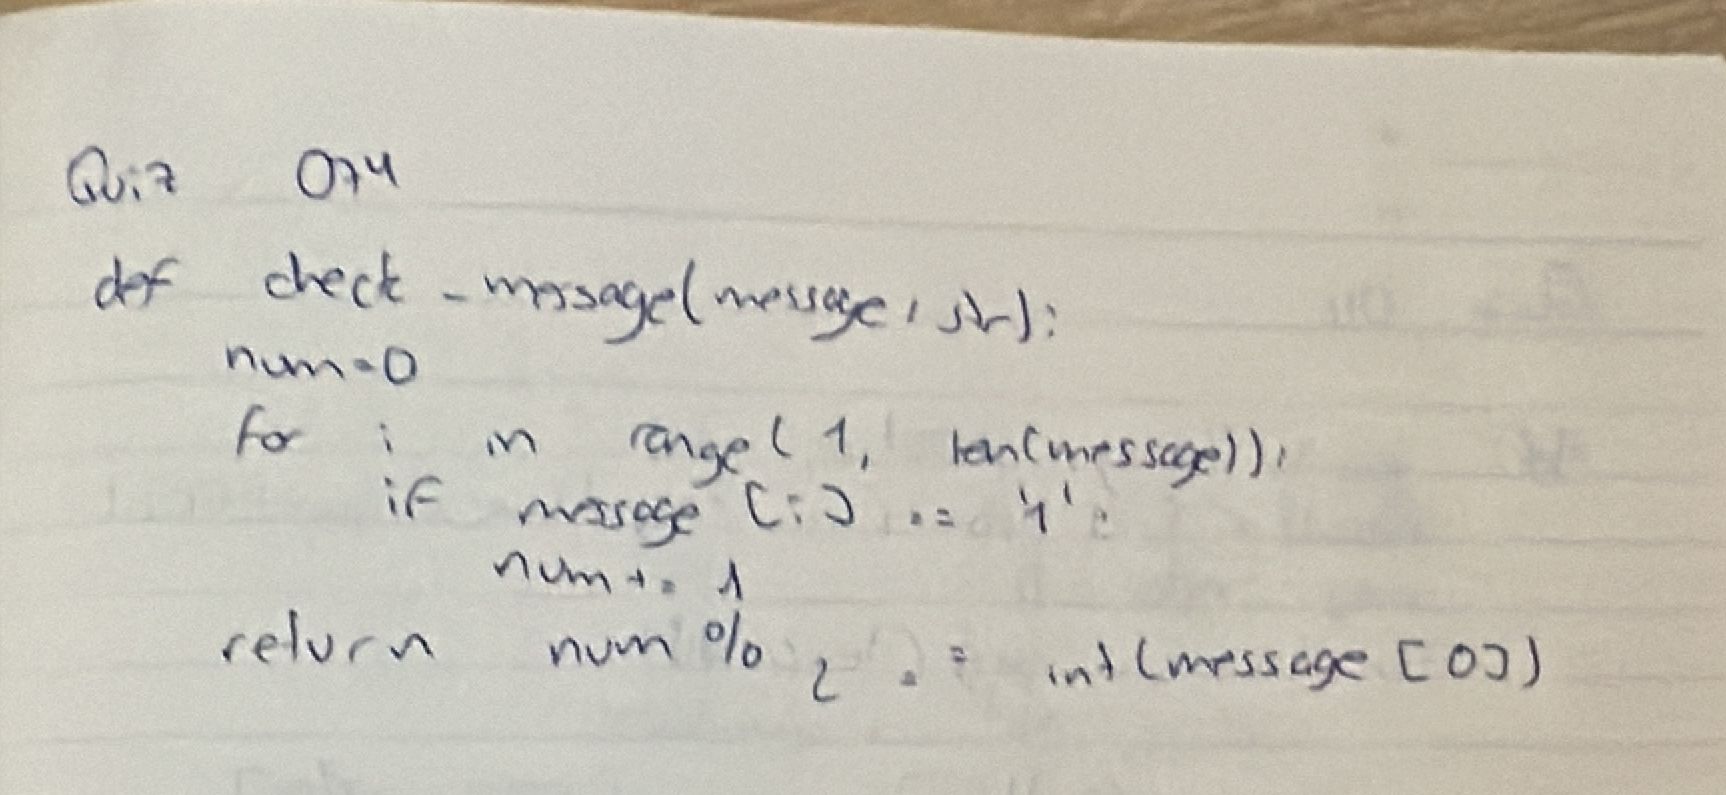 Quiz 074
def check_message(message: str):
num=0
for i in range(1, len(message)):
if message[i] == '1':
num += 1
return num % 2 == int(message[0])